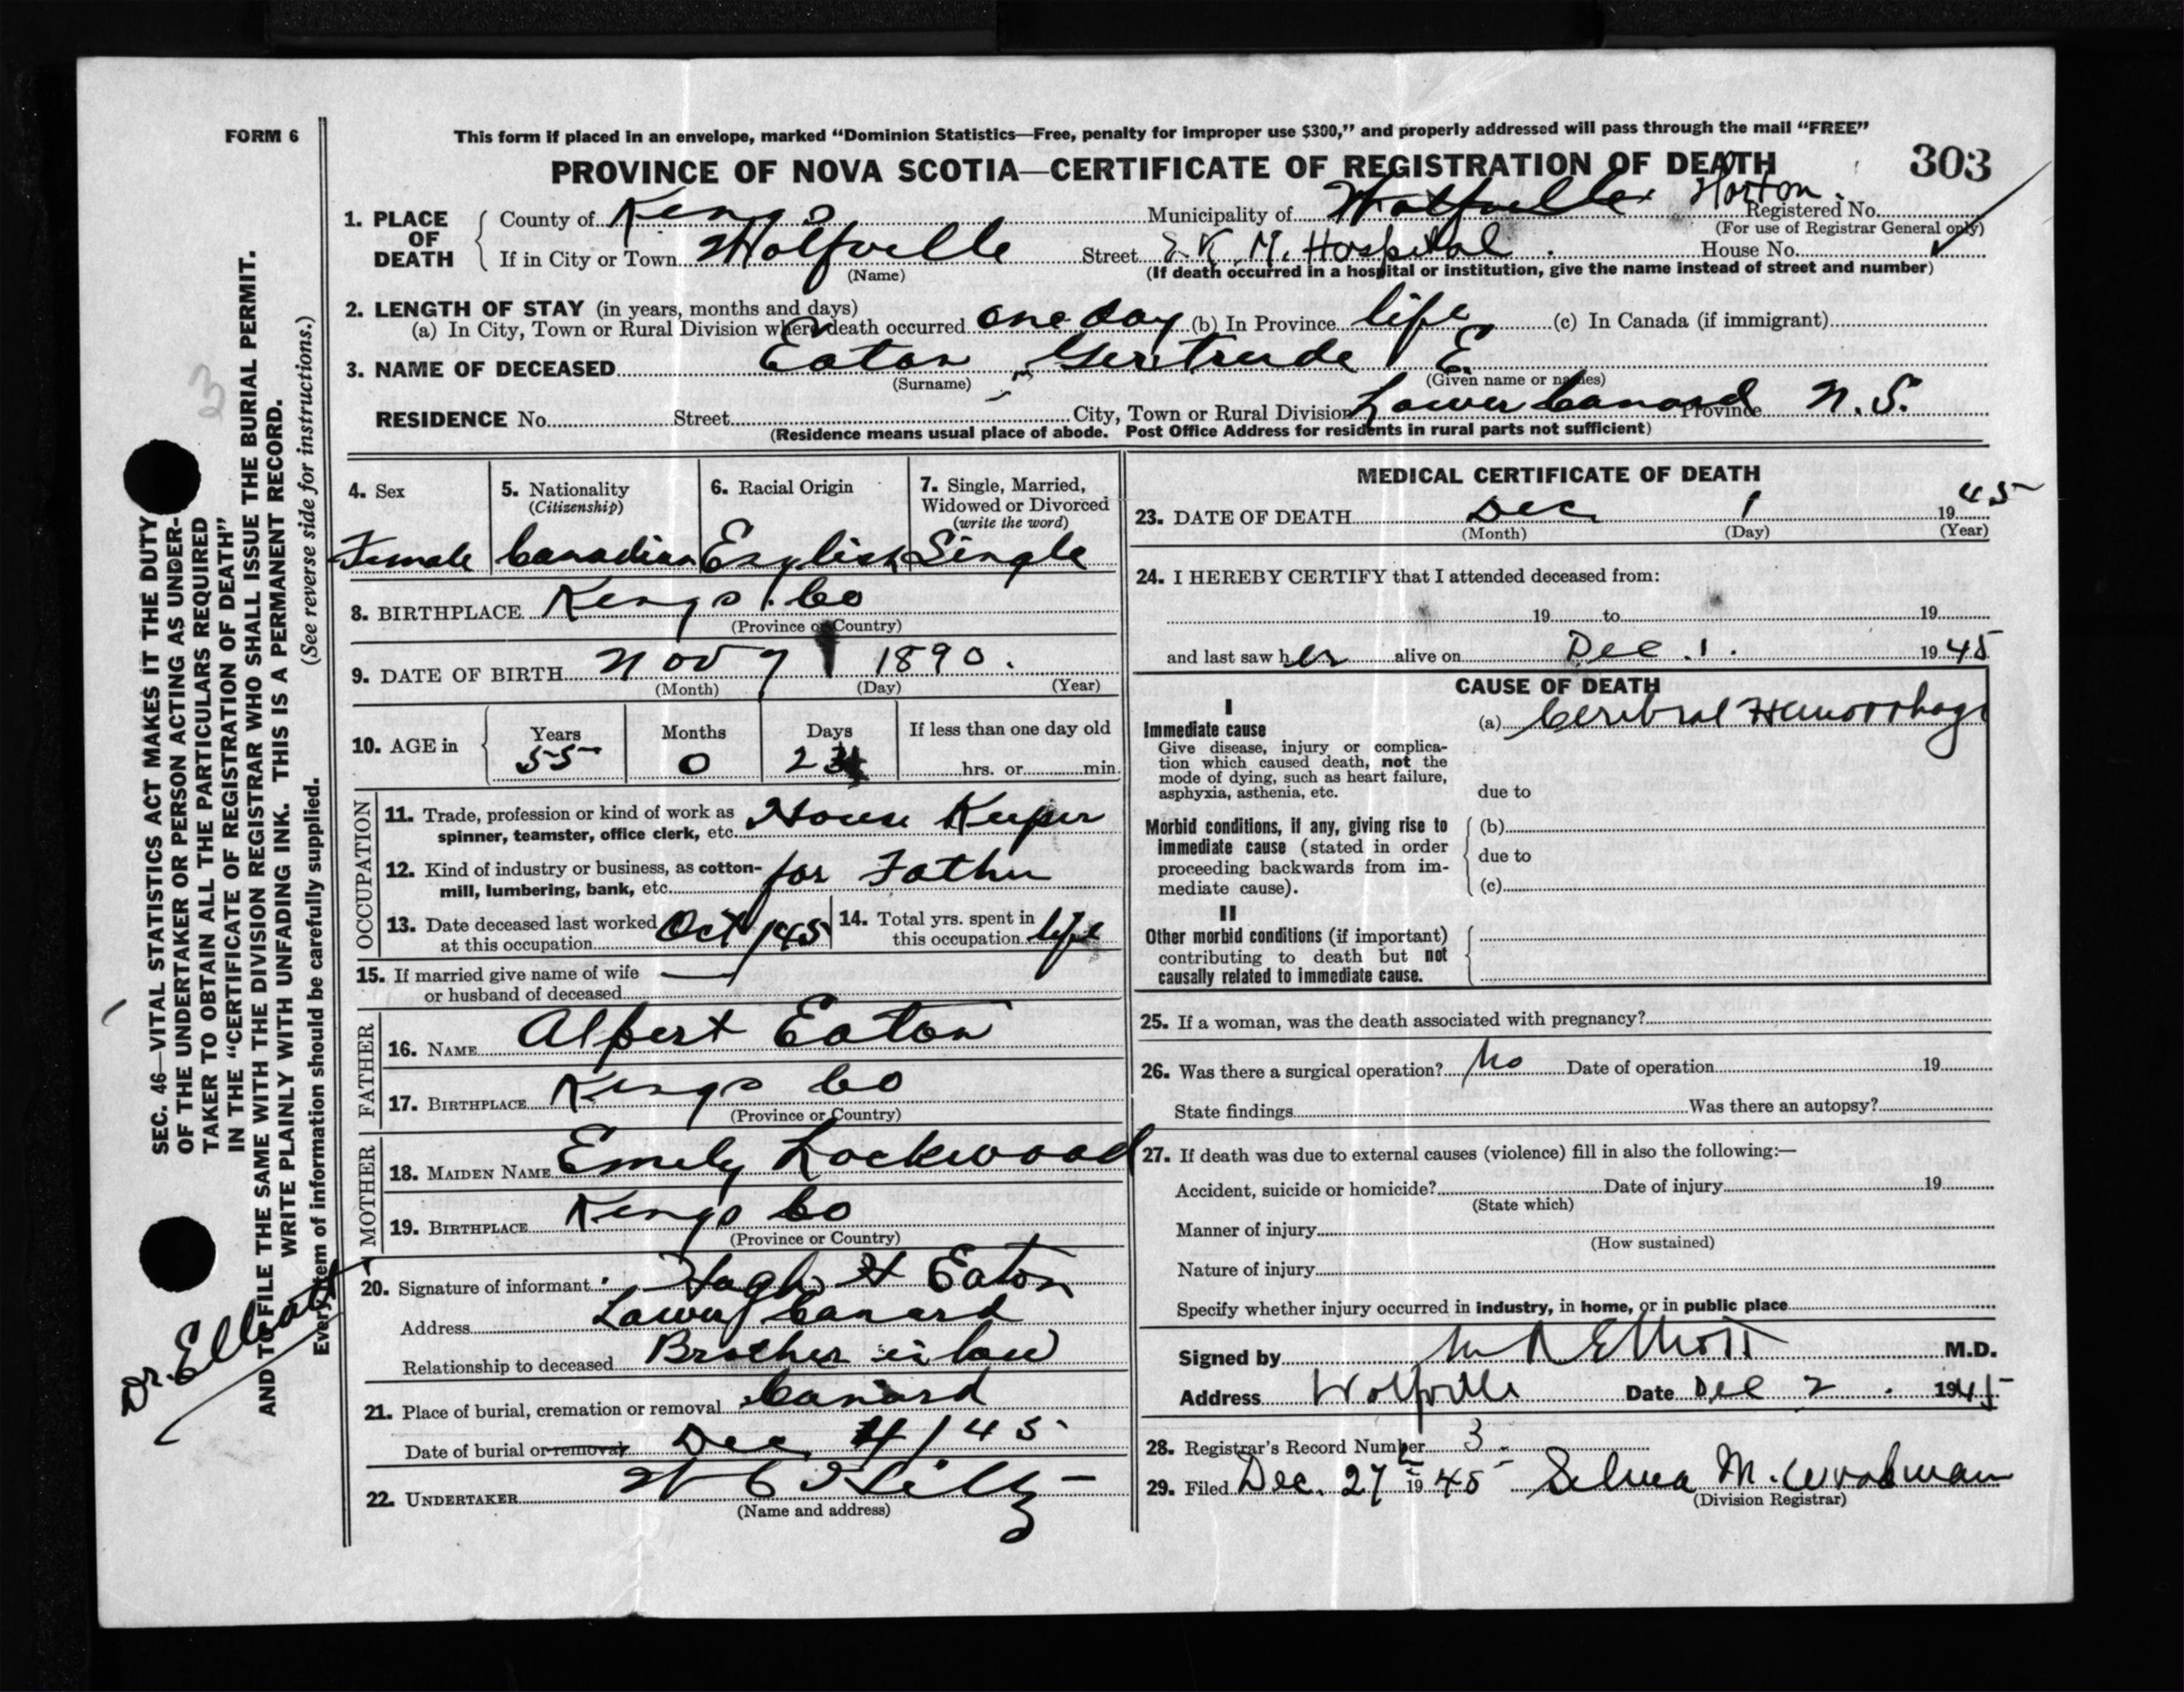 FORM 6
This form if placed in an envelope, marked “Dominion Statistics—Free, penalty for improper use $300,” and properly addressed will pass through the mail “FREE”
PROVINCE OF NOVA SCOTIA—CERTIFICATE OF REGISTRATION OF DEATH 303
1. PLACE OF DEATH
County of Kings Municipality of Wolfville Horton. Registered No.
(For use of Registrar General only)
If in City or Town Wolfville Street E.K.M. Hospital. House No.
(Name) (If death occurred in a hospital or institution, give the name instead of street and number)
2. LENGTH OF STAY (in years, months and days)
(a) In City, Town or Rural Division where death occurred one day (b) In Province life (c) In Canada (if immigrant)
3. NAME OF DECEASED Eaton, Gertrude E.
(Surname) (Given name or names)
RESIDENCE No. Street City, Town or Rural Division Lower Canard Province N.S.
(Residence means usual place of abode. Post Office Address for residents in rural parts not sufficient)
4. Sex
Female
5. Nationality
(Citizenship)
Canadian
6. Racial Origin
English
7. Single, Married,
Widowed or Divorced
(write the word)
Single
8. BIRTHPLACE Kings Co
(Province or Country)
9. DATE OF BIRTH Nov 7 1890.
(Month) (Day) (Year)
10. AGE in
Years 55
Months 0
Days 24
If less than one day old
hrs. or min.
OCCUPATION
11. Trade, profession or kind of work as
spinner, teamster, office clerk, etc. House Keeper
12. Kind of industry or business, as cotton-
mill, lumbering, bank, etc. for Father
13. Date deceased last worked
at this occupation Oct 1945
14. Total yrs. spent in
this occupation life
15. If married give name of wife
or husband of deceased —
FATHER
16. NAME Alpert Eaton
17. BIRTHPLACE Kings Co
(Province or Country)
MOTHER
18. MAIDEN NAME Emily Lockwood
19. BIRTHPLACE Kings Co
(Province or Country)
20. Signature of informant Hugh H Eaton
Address Lower Canard
Relationship to deceased Brother in law
21. Place of burial, cremation or removal Canard
Date of burial or removal Dec 4/45
22. UNDERTAKER
(Name and address)
MEDICAL CERTIFICATE OF DEATH
23. DATE OF DEATH Dec 1 1945
(Month) (Day) (Year)
24. I HEREBY CERTIFY that I attended deceased from:
19 to 19
and last saw her alive on Dec. 1. 1945
CAUSE OF DEATH
I
Immediate cause
Give disease, injury or complica-
tion which caused death, not the
mode of dying, such as heart failure,
asphyxia, asthenia, etc.
(a) Cerebral Hemorrhage
due to
Morbid conditions, if any, giving rise to
immediate cause (stated in order
proceeding backwards from im-
mediate cause).
(b)
due to
(c)
II
Other morbid conditions (if important)
contributing to death but not
causally related to immediate cause.
25. If a woman, was the death associated with pregnancy?
26. Was there a surgical operation? No Date of operation 19
State findings Was there an autopsy?
27. If death was due to external causes (violence) fill in also the following:—
Accident, suicide or homicide? Date of injury 19
(State which)
Manner of injury
(How sustained)
Nature of injury
Specify whether injury occurred in industry, in home, or in public place
Signed by Elliott M.D.
Address Wolfville Date Dec 2. 1945
28. Registrar's Record Number 3.
29. Filed Dec. 27th 1945 Selma M. Woodman
(Division Registrar)
SEC. 46—VITAL STATISTICS ACT MAKES IT THE DUTY
OF THE UNDERTAKER OR PERSON ACTING AS UNDER-
TAKER TO OBTAIN ALL THE PARTICULARS REQUIRED
IN THE “CERTIFICATE OF REGISTRATION OF DEATH”
AND TO FILE THE SAME WITH THE DIVISION REGISTRAR WHO SHALL ISSUE THE BURIAL PERMIT.
WRITE PLAINLY WITH UNFADING INK. THIS IS A PERMANENT RECORD.
Every item of information should be carefully supplied. (See reverse side for instructions.)
3
Dr. Elliott